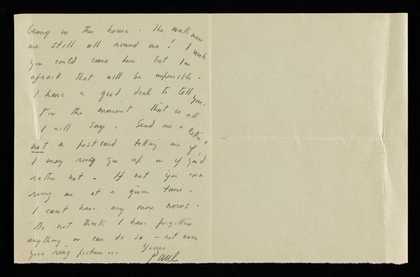 living in the house. The workmen
are still all round me! I wish
you could come down but I'm
afraid that will be impossible.
I have a good deal to tell you.
For the moment that is all
I will say. Send me a letter,
not a postcard telling me if
I may ring you up or if you'd
rather not. If not you can
ring me at a given time.
I can't have any more rows.
Do not think I have forgotten
anything or can do so – not even
your
Yours
Paul